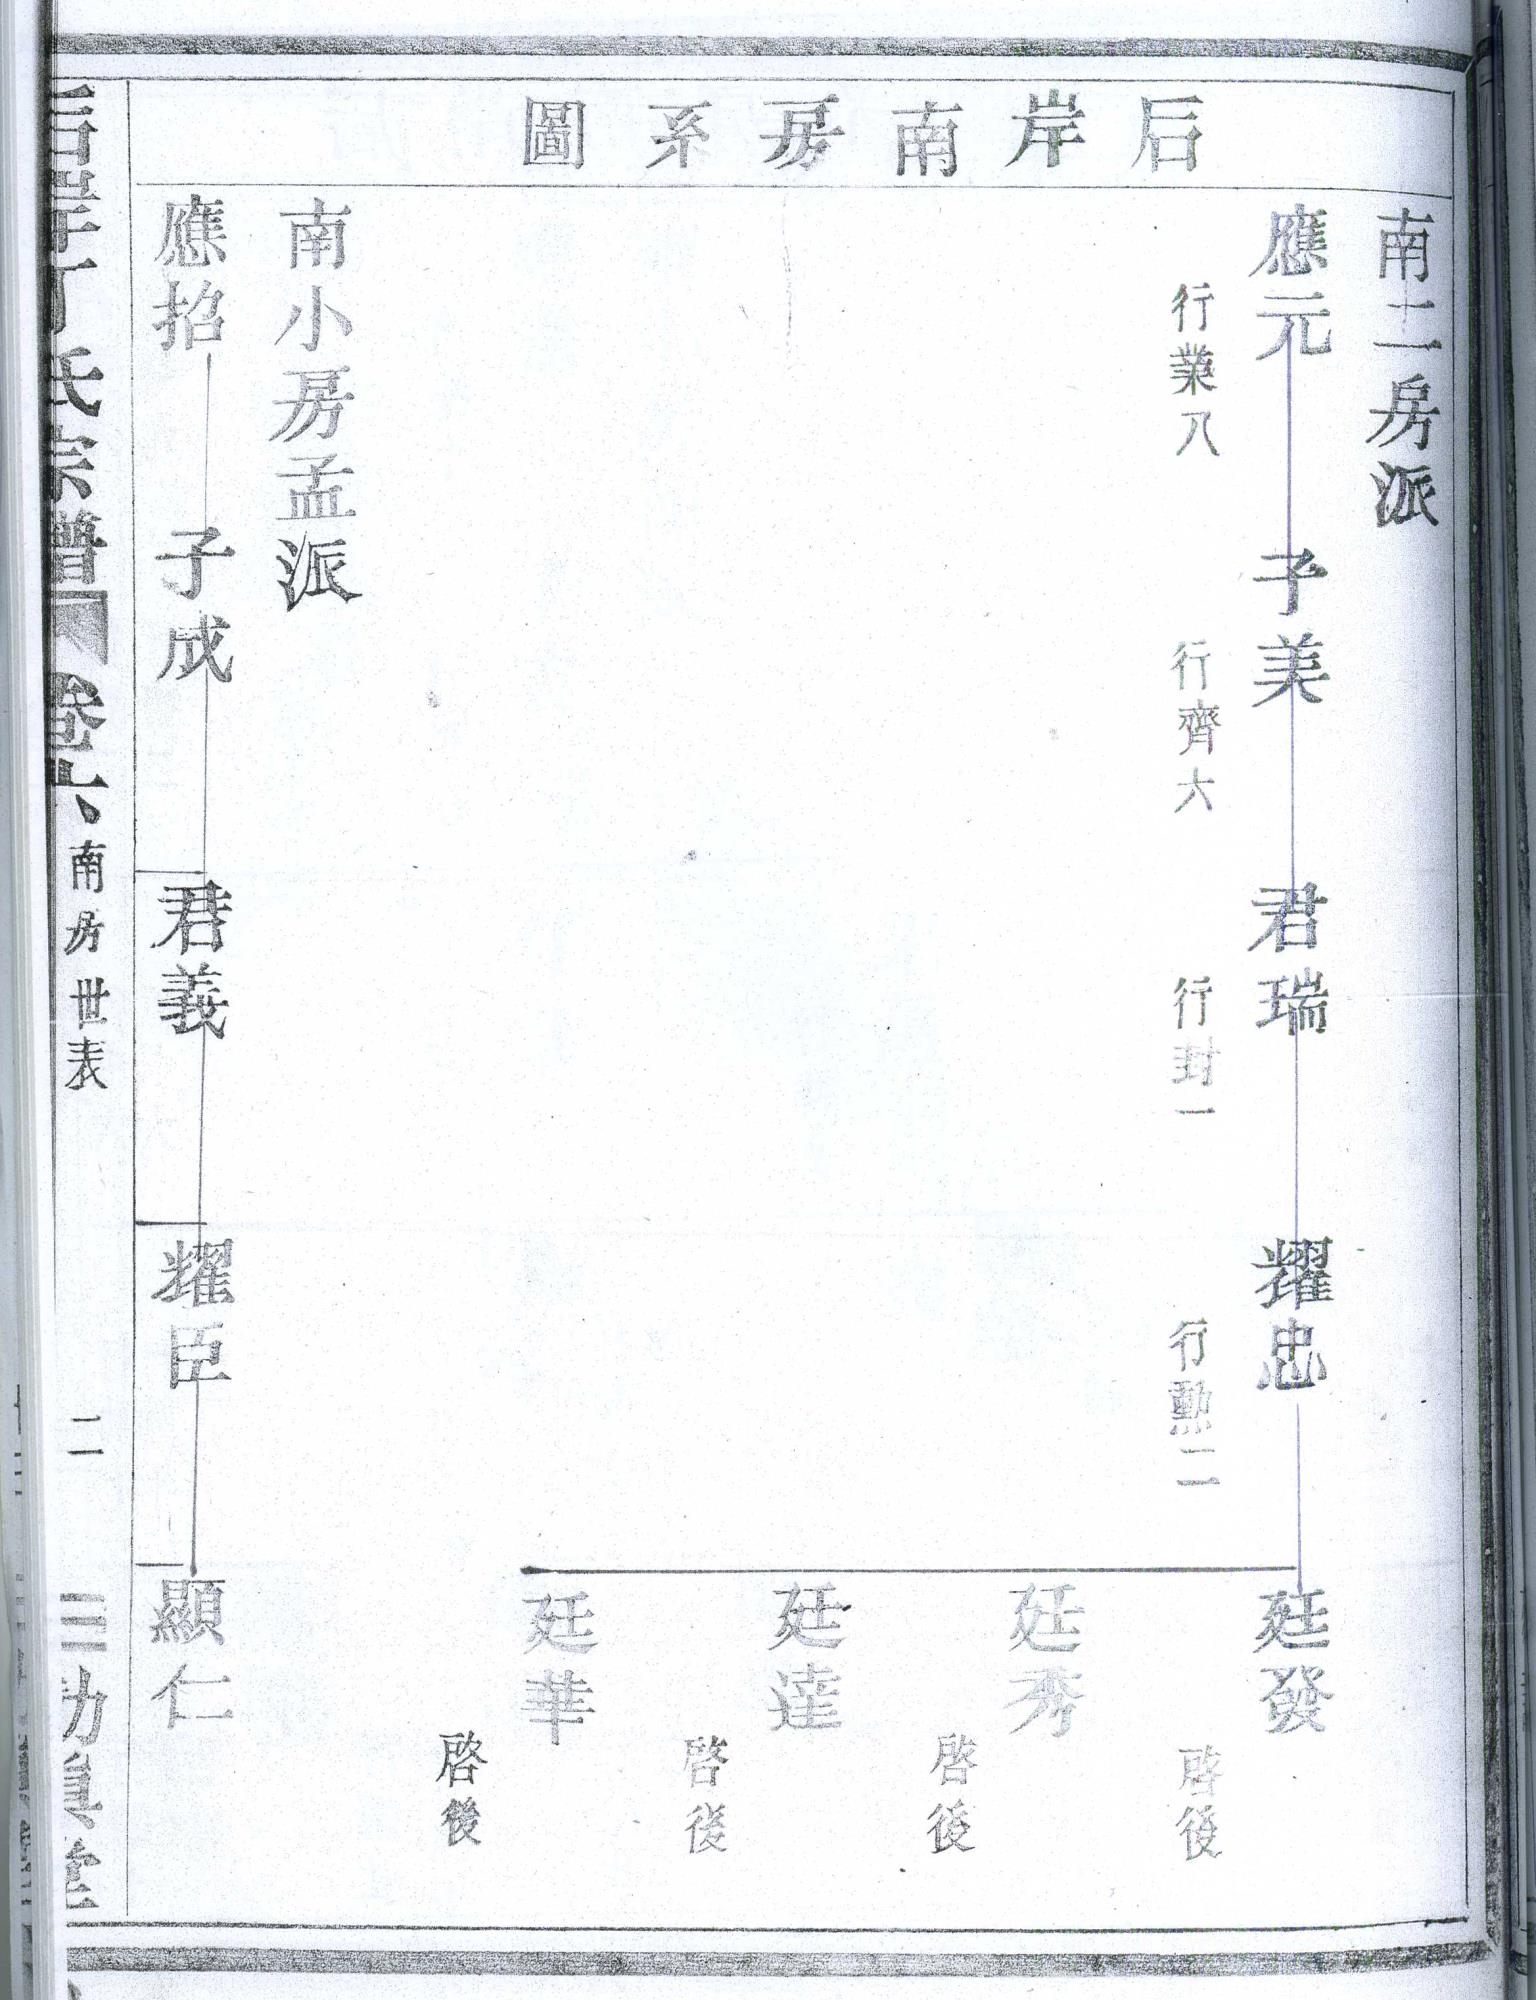 后岸南房系圖
南二房派
應元
行業八
子美
行齊六
君瑞
行封一
耀忠
行勲二
廷發
啓後
廷秀
啓後
廷達
啓後
廷華
啓後
南小房孟派
應招
子成
君義
耀臣
顯仁
后岸丁氏宗譜
卷六
南房世表
二
三
堂